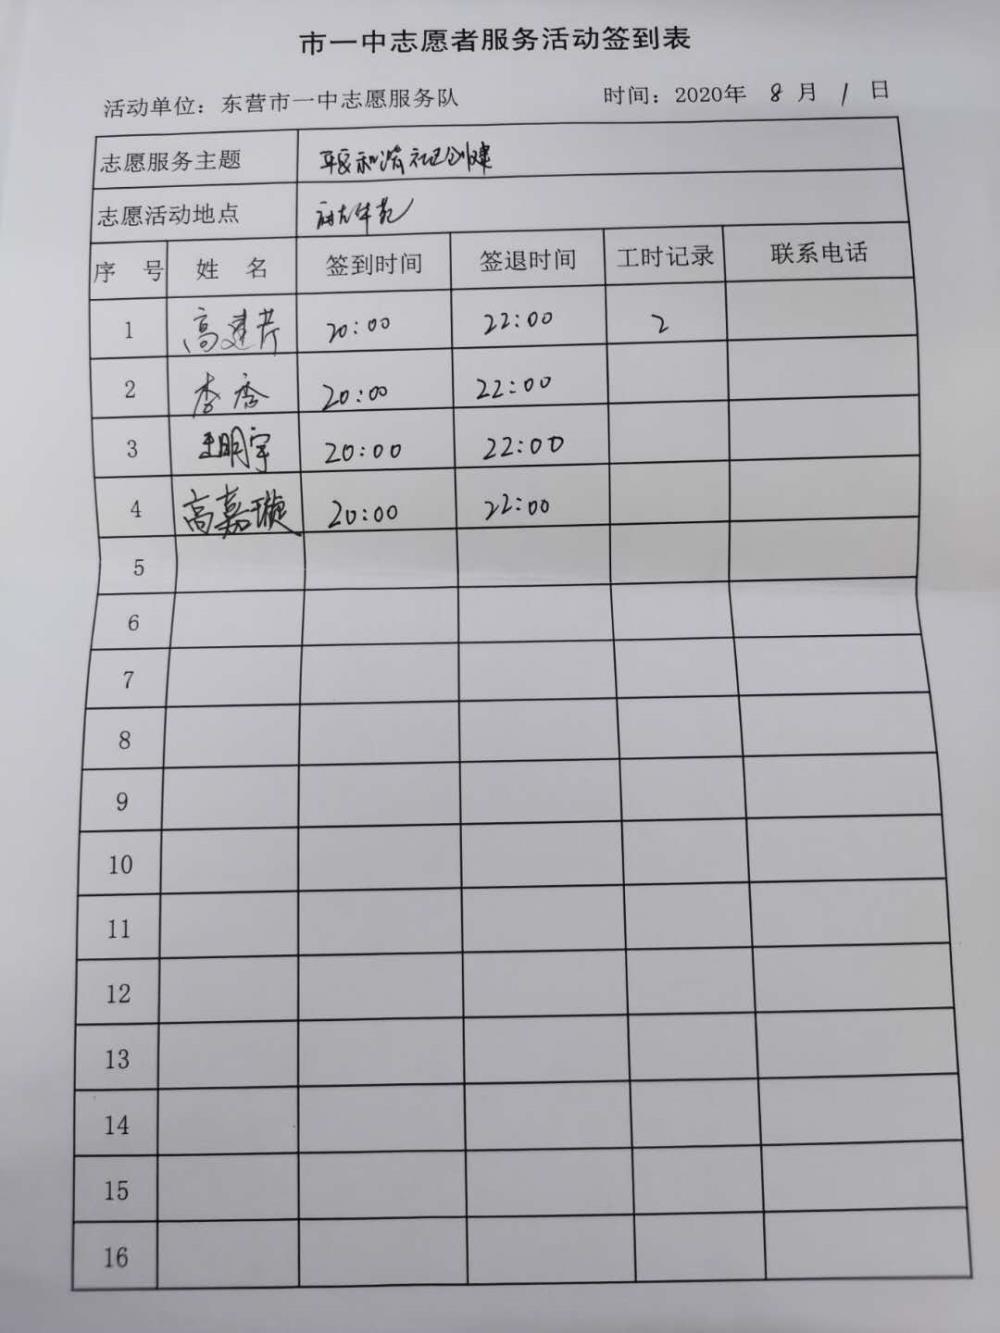 市一中志愿者服务活动签到表
活动单位：东营市一中志愿服务队 时间：2020年 8 月 1 日
志愿服务主题 和谐社区创建
志愿活动地点
序 号 姓 名 签到时间 签退时间 工时记录 联系电话
1 高建芹 20:00 22:00 2
2 李秀 20:00 22:00
3 王明宇 20:00 22:00
4 高嘉璇 20:00 22:00
5
6
7
8
9
10
11
12
13
14
15
16